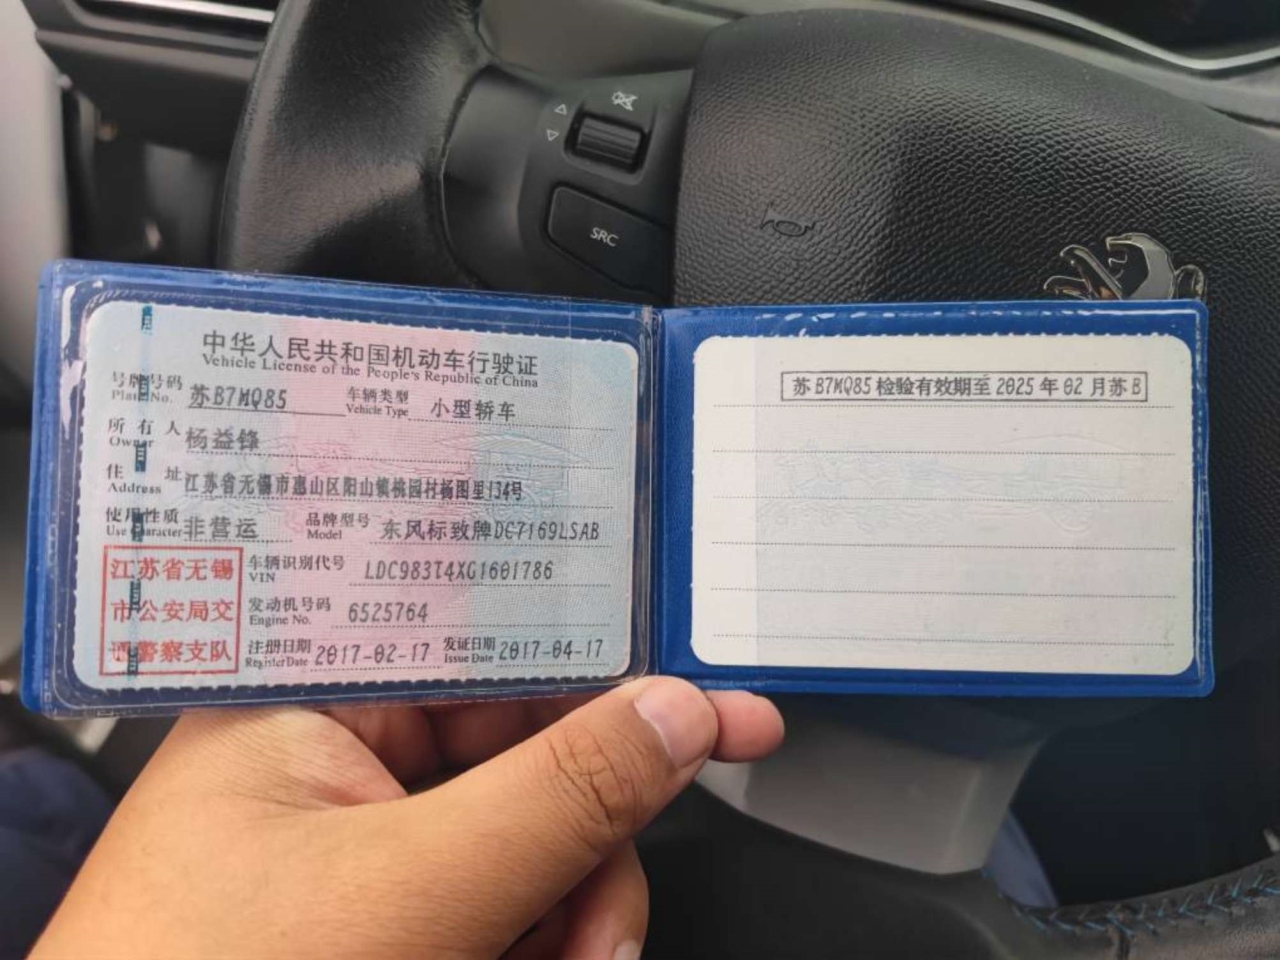 SRC
中华人民共和国机动车行驶证
Vehicle License of the People's Republic of China
号牌号码 苏B7MQ85 车辆类型 小型轿车
Plate No. Vehicle Type
所有人 杨益锋
Owner
住址 江苏省无锡市惠山区阳山镇桃园村杨图里134号
Address
使用性质 非营运 品牌型号 东风标致牌DC7169LSAB
Use Character Model
江苏省无锡
市公安局交
通警察支队
车辆识别代号 LDC983T4XG1601786
VIN
发动机号码 6525764
Engine No.
注册日期 2017-02-17 发证日期 2017-04-17
Register Date Issue Date
苏B7MQ85检验有效期至2025年02月苏B